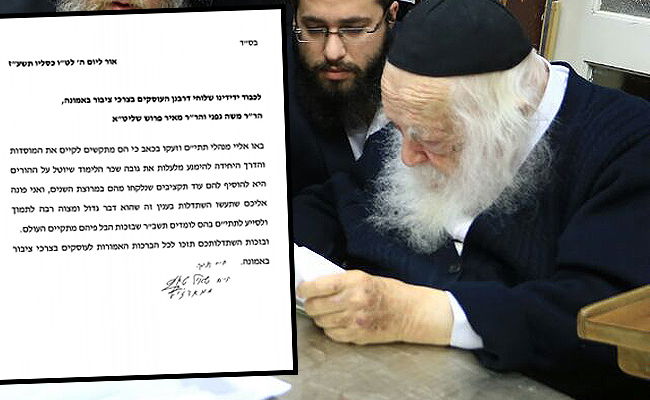 בס״ד
אור ליום ה׳ לט״ו כסליו תשע״ז
לכבוד ידידינו שלוחי דרבנן העוסקים בצרכי ציבור באמונה,
הר״ר משה גפני והר״ר מאיר פרוש שליט״א
באו אליי מנהלי תתי״ם וזעקו בכאב כי הם מתקשים לקיים את המוסדות
והדרך היחידה להימנע מלעלות את גובה שכר הלימוד שיוטל על ההורים
היא להוסיף להם עוד תקציבים שנלקחו מהם במרוצת השנים, ואני פונה
אליכם שתעשו השתדלות בענין זה שהוא דבר גדול ומצוה רבה לתמוך
ולסייע לתתי״ים בהם לומדים תשב״ר שבזכות הבל פיהם מתקיים העולם.
ובזכות השתדלותכם תזכו לכל הברכות האמורות לעוסקים בצרכי ציבור
באמונה.